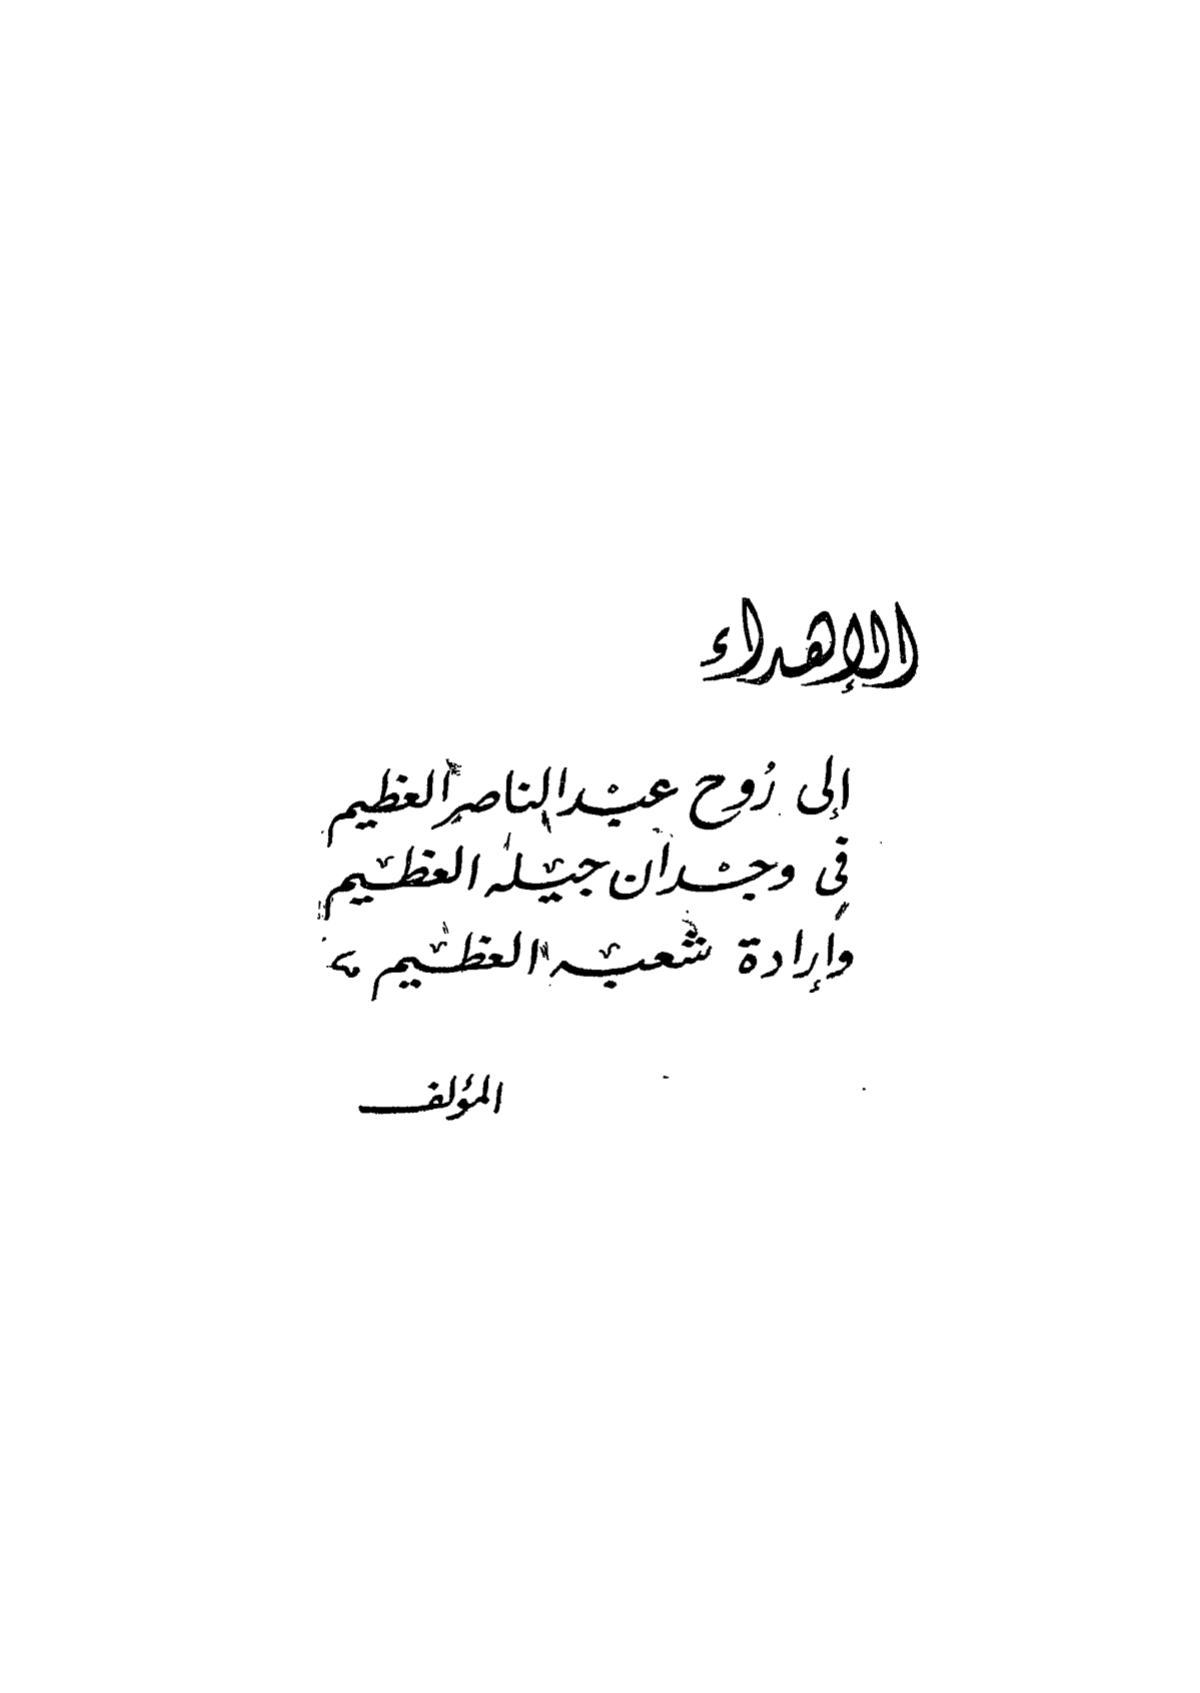 الإهداء
إلى رُوح عبد الناصر العظيم
في وجدان جيله العظيم
وإرادة شعبه العظيم
المؤلف